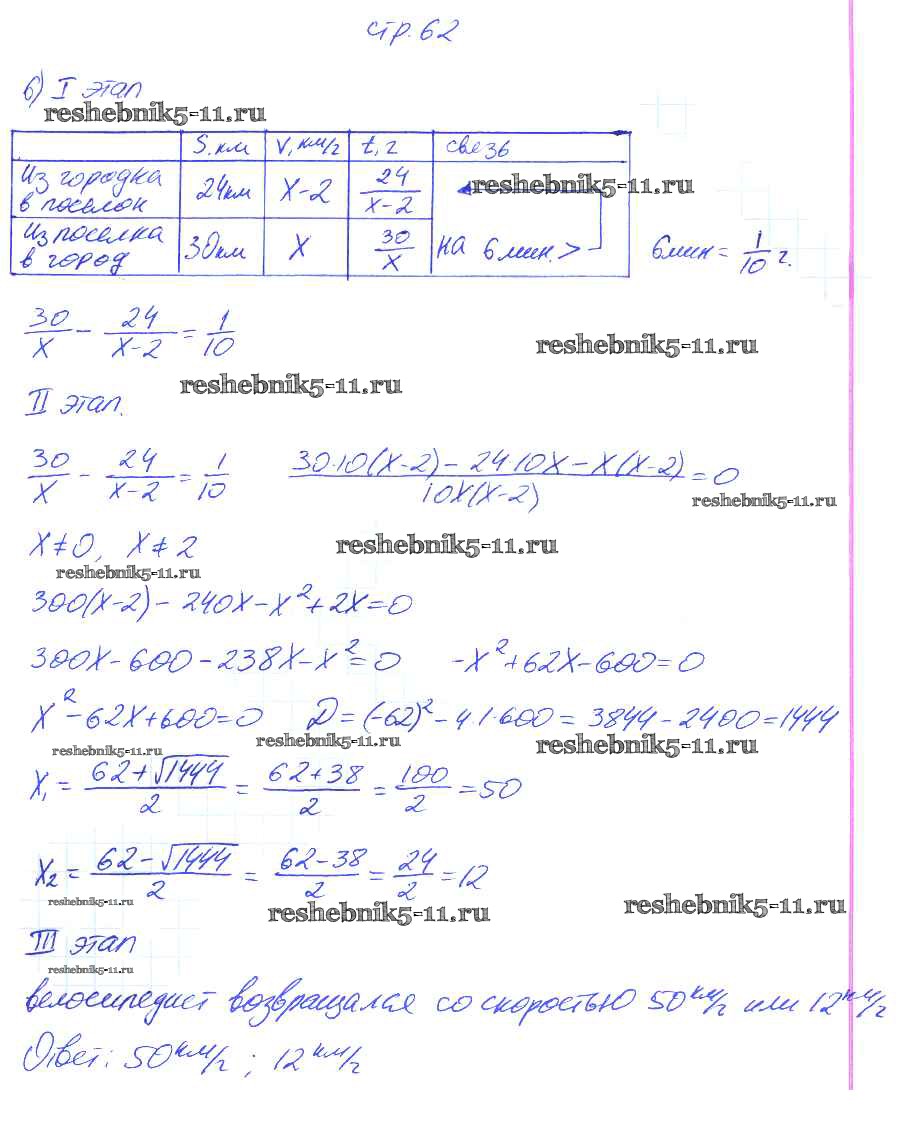 стр. 62
б) I этап
reshebnik5-11.ru
S. км V, км/г t, г свезь
Из городка в поселок 24км x-2 24/(x-2) reshebnik5-11.ru
Из поселка в город 30км x 30/x на 6 мин. > 6 мин = 1/10 г.
30/x - 24/(x-2) = 1/10 reshebnik5-11.ru
reshebnik5-11.ru
II этап.
30/x - 24/(x-2) = 1/10 (30·10(x-2) - 24·10x - x(x-2))/(10x(x-2)) = 0
reshebnik5-11.ru
x≠0, x≠2 reshebnik5-11.ru
reshebnik5-11.ru
300(x-2) - 240x - x² + 2x = 0
300x - 600 - 238x - x² = 0 -x² + 62x - 600 = 0
x² - 62x + 600 = 0 D = (-62)² - 4·1·600 = 3844 - 2400 = 1444
reshebnik5-11.ru reshebnik5-11.ru reshebnik5-11.ru
x₁ = (62+√1444)/2 = (62+38)/2 = 100/2 = 50
x₂ = (62-√1444)/2 = (62-38)/2 = 24/2 = 12
reshebnik5-11.ru reshebnik5-11.ru reshebnik5-11.ru
III этап
reshebnik5-11.ru
велосипедист возвращался со скоростью 50 км/г или 12 км/г
Ответ: 50 км/г ; 12 км/г